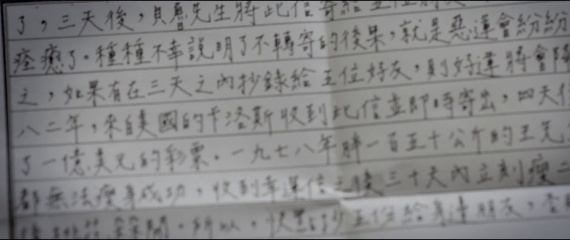 了，三天後，貝魯先生將此信寄給五位朋友
痊癒了。種種不幸說明了不轉寄的後果，就是惡運會紛紛
之，如果有在三天之內抄錄給五位好友，則好運將會降
八二年，來自美國的卡洛斯收到此信並即時寄出，四天
了一億美元的彩票。一九七八年胖一百五十公斤的王先
都無法瘦身成功，收到幸運信之後三十天內立刻瘦二
所以，快點抄五位給身邊朋友，否